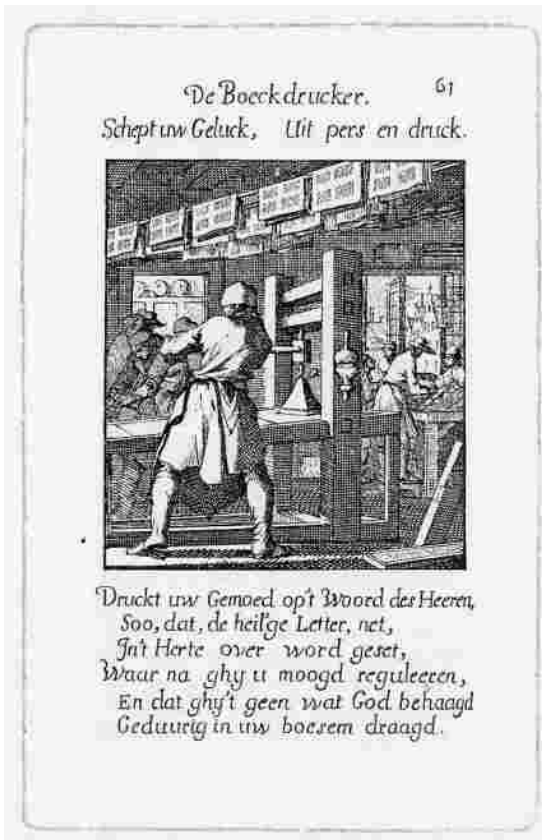 De Boeckdrucker. 61
Schept uw Geluck, Uit pers en druck.
Druckt uw Gemoed op't Woord des Heeren,
Soo, dat, de heil'ge Letter, net,
In't Herte over word geset,
Waar na ghy u moogd reguleeren,
En dat ghy't geen wat God behaagd
Geduurig in uw boesem draagd.